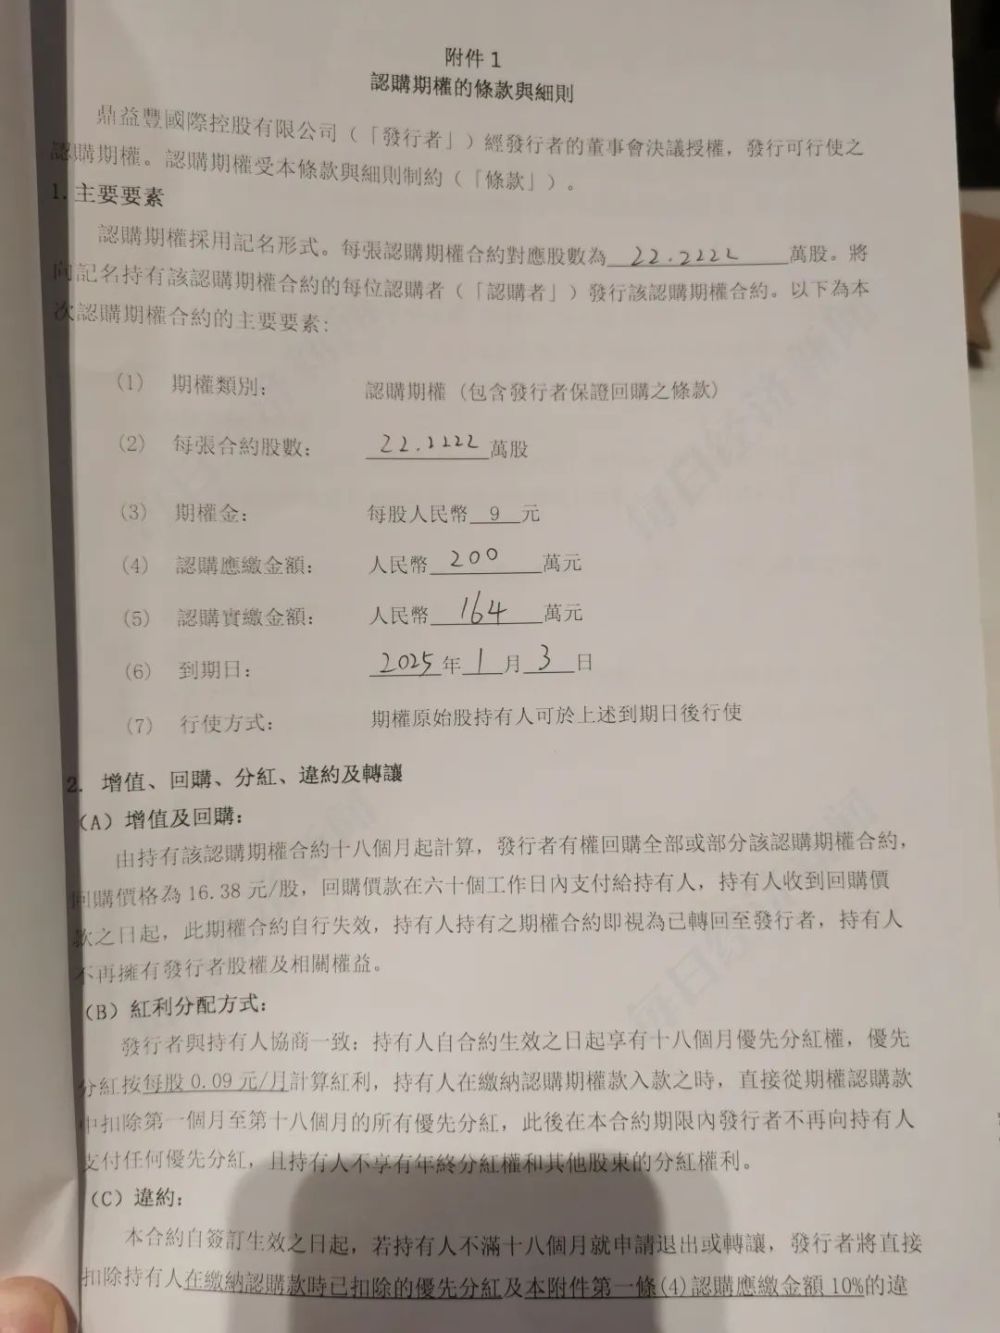 附件 1
認購期權的條款與細則
鼎益豐國際控股有限公司（「發行者」）經發行者的董事會決議授權，發行可行使之
認購期權。認購期權受本條款與細則制約（「條款」）。
1. 主要要素
認購期權採用記名形式。每張認購期權合約對應股數為 22.2222 萬股。將
向記名持有該認購期權合約的每位認購者（「認購者」）發行該認購期權合約。以下為本
次認購期權合約的主要要素:
(1) 期權類別: 認購期權（包含發行者保證回購之條款）
(2) 每張合約股數: 22.2222 萬股
(3) 期權金: 每股人民幣 9 元
(4) 認購應繳金額: 人民幣 200 萬元
(5) 認購實繳金額: 人民幣 164 萬元
(6) 到期日: 2025 年 1 月 3 日
(7) 行使方式: 期權原始股持有人可於上述到期日後行使
2. 增值、回購、分紅、違約及轉讓
(A) 增值及回購:
由持有該認購期權合約十八個月起計算，發行者有權回購全部或部分該認購期權合約，
回購價格為 16.38 元/股，回購價款在六十個工作日內支付給持有人，持有人收到回購價
款之日起，此期權合約自行失效，持有人持有之期權合約即視為已轉回至發行者，持有人
不再擁有發行者股權及相關權益。
(B) 紅利分配方式:
發行者與持有人協商一致：持有人自合約生效之日起享有十八個月優先分紅權，優先
分紅按每股 0.09 元/月計算紅利，持有人在繳納認購期權款入款之時，直接從期權認購款
中扣除第一個月至第十八個月的所有優先分紅，此後在本合約期限內發行者不再向持有人
支付任何優先分紅，且持有人不享有年終分紅權和其他股東的分紅權利。
(C) 違約:
本合約自簽訂生效之日起，若持有人不滿十八個月就申請退出或轉讓，發行者將直接
扣除持有人在繳納認購款時已扣除的優先分紅及本附件第一條(4)認購應繳金額 10%的違
每日经济新闻
每日经济新闻